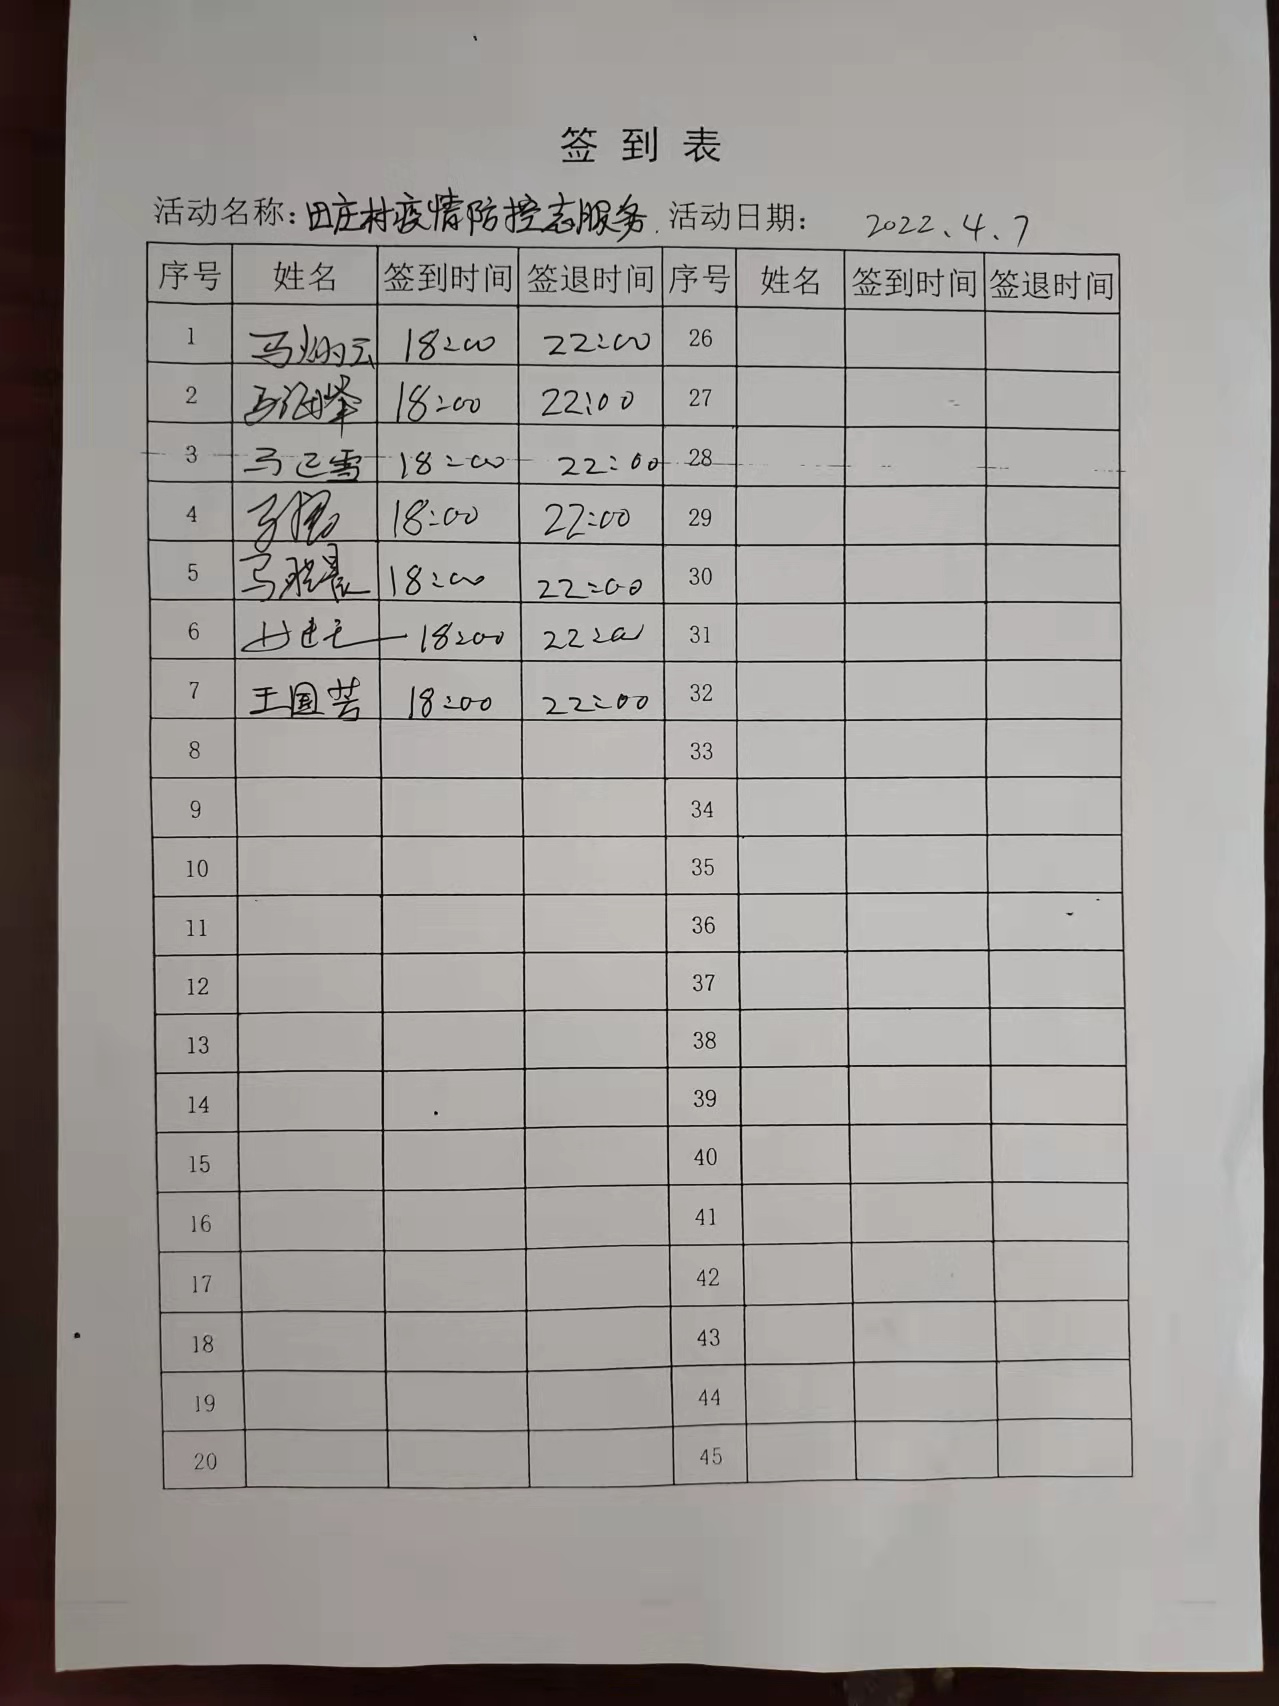 签到表
活动名称：田庄村疫情防控志服务. 活动日期： 2022、4、7
序号 姓名 签到时间 签退时间 序号 姓名 签到时间 签退时间
1 18:00 22:00 26
2 马海峰 18:00 22:00 27
3 18:00 22:00 28
4 18:00 22:00 29
5 马晓晨 18:00 22:00 30
6 18:00 22:00 31
7 王国芳 18:00 22:00 32
8 33
9 34
10 35
11 36
12 37
13 38
14 39
15 40
16 41
17 42
18 43
19 44
20 45